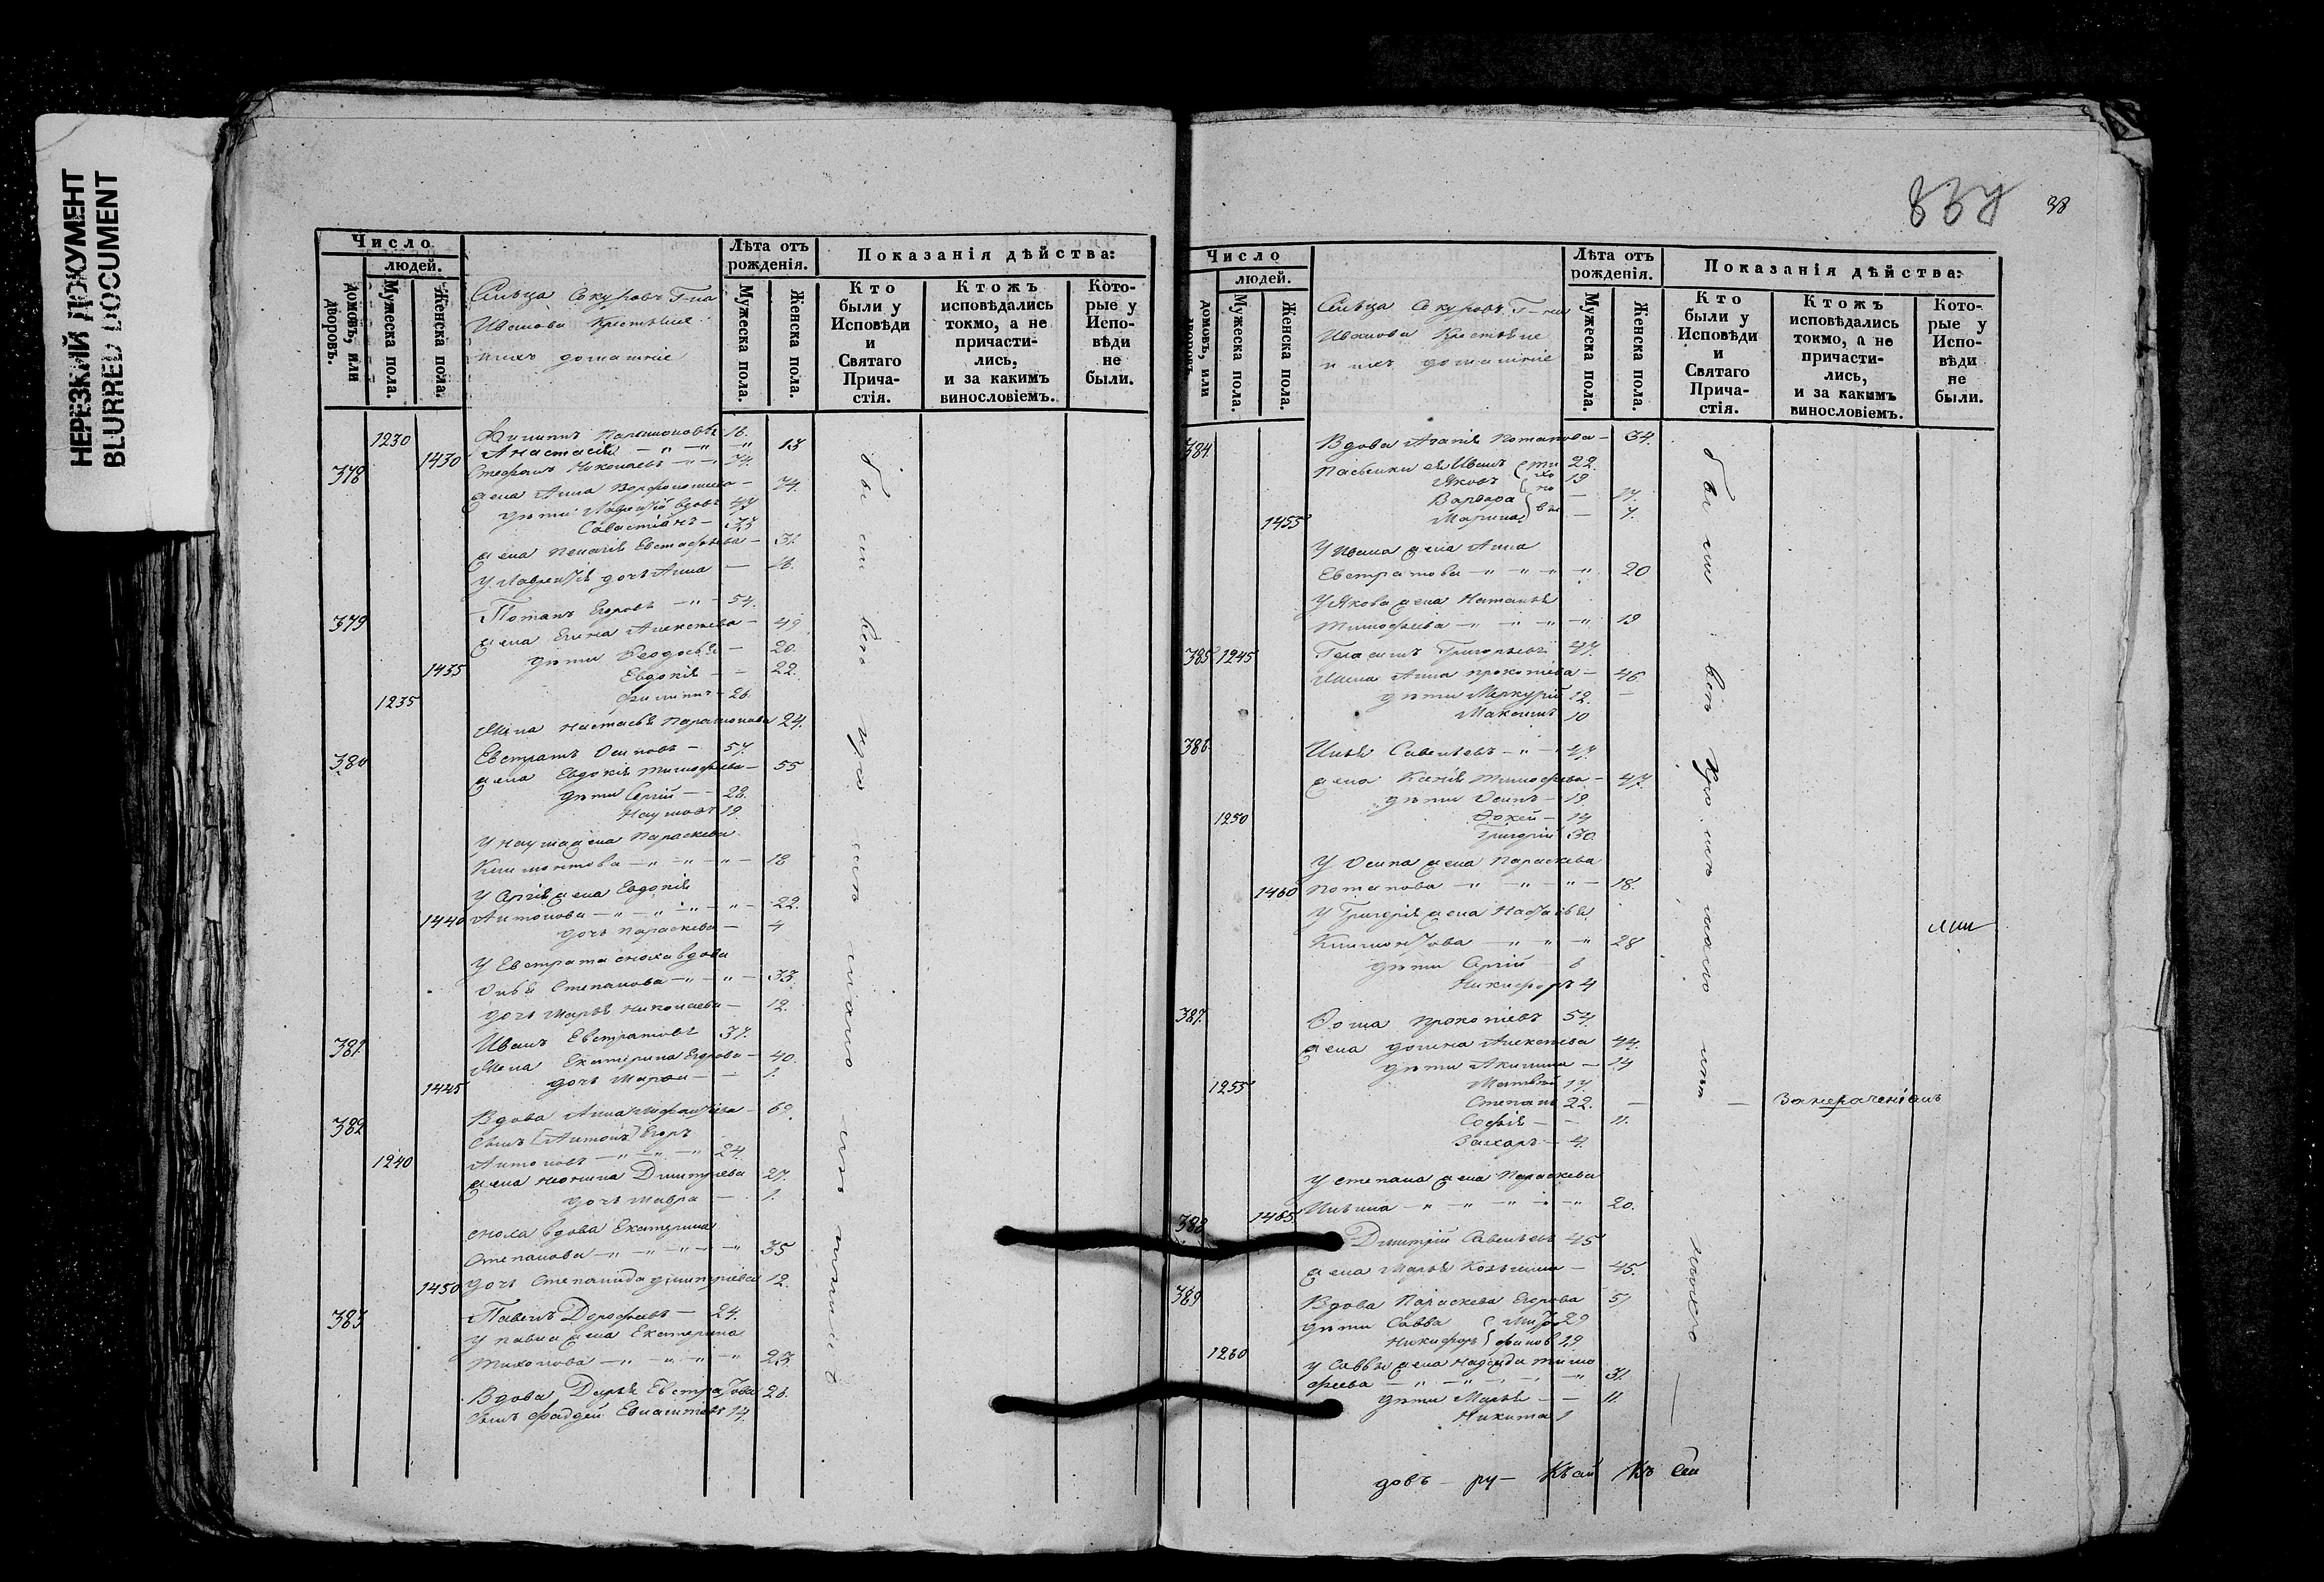 НЕРЕЗКИЙ ДОКУМЕНТ
BLURRED DOCUMENT
Число
людей.
домовъ, или дворовъ.
Мужеска пола.
Женска пола.
Сельца Секуровъ Г-на
Иванова Крестьяне
и ихъ домашніе
Лѣта отъ рожденія.
Мужеска пола.
Женска пола.
Показанія дѣйства:
Кто были у Исповѣди и Святаго Прича-стія.
Ктожъ исповѣдались токмо, а не причасти-лись, и за какимъ винословіемъ.
Кото-рые у Испо-вѣди не были.
1230 Филиппъ Парамоновъ 16.
1430 Анастасія — 13
378 Стефанъ Николаевъ 74.
жена Анна Варфоломеева — 74.
дѣти Лаврентій вдовъ 47
Савастіянъ — 33
жена Пелагія Евстафьева — 31.
У Лаврентія дочь Анна — 16.
379 Потапъ Егоровъ — 54.
жена Елена Алексеева — 49
дѣти Феодосья — 20.
1435 Евдокія — 22.
1235 Филиппъ — 26.
Жена Настасья Парамонова 24.
380 Евстратъ Осиповъ — 57.
жена Евдокія Тимофеева — 55
дѣти Сергій — 28.
Наумъ 19.
У Наума жена Параскева
Климонтова — 18
У Сергія жена Евдокія
1440 Антонова — 22.
дочь Параскева — 4
У Евстрата сноха вдова
Степанова — 33.
дочь Марья Николаева — 12.
381. Иванъ Евстратовъ 37.
Жена Екатерина Егорова — 40.
1445 дочь Марфа — 1.
382 Вдова Анна — 69.
сынъ [Антонъ] Егоръ
1240 Антоновъ — 24.
жена Неонила Дмитріева 27.
дочь Мавра — 1.
сноха вдова Екатерина
Степанова — 35
1450 дочь Степанида Дмитріева 12.
383 Павелъ Дорофеевъ — 24.
У Павла жена Екатерина
Тихонова — 23
Вдова Дарья Евстратова 26.
сынъ Фаддей 14.
были
838 38
Число
людей.
домовъ, или дворовъ.
Мужеска пола.
Женска пола.
Сельца Секуровъ Г-на
Иванова Крестьяне
и ихъ домашніе
Лѣта отъ рожденія.
Мужеска пола.
Женска пола.
Показанія дѣйства:
Кто были у Исповѣди и Святаго Прича-стія.
Ктожъ исповѣдались токмо, а не причасти-лись, и за какимъ винословіемъ.
Кото-рые у Испо-вѣди не были.
384. Вдова Агапія Потапова — 34.
Пасынки ея Иванъ 22.
Яковъ 19
Варвара — 17.
1455 Марина — 7.
У Ивана жена Анна
Евстратова — 20
У Якова жена Наталья
Тимофеева — 19
385 1245 Герасимъ Григорьевъ 47
Жена Анна Прокопіева — 46
дѣти Меркурій 12.
Максимъ 10
386 Илья Савельевъ — 47.
жена Ксенія Тимофеева — 47.
дѣти Осипъ — 19.
1250 Фокей — 14
Григорій 30.
У Осипа жена Параскева
1460 Потапова — 18.
У Григорія жена Настасья
Климонтова — 28
дѣти Сергій — 6
Никифоръ 4
387. Фома Прокопіевъ 54.
жена Домна Алексеева 44.
дѣти Акилина — 14
1255 Матвѣй 17.
Степанъ 22.
Софія — 11.
Захаръ — 4.
У Степана жена Параскева
1465. Ильина — 20.
388 Дмитрій Савельевъ 45
жена Марья Козьмина — 45.
389 Вдова Параскева Егорова 51
дѣти Савва 29
1260 Никифоръ 19
У Саввы жена Надежда Тимо
феева — 31.
дѣти Марья — 11.
Никита 1
были